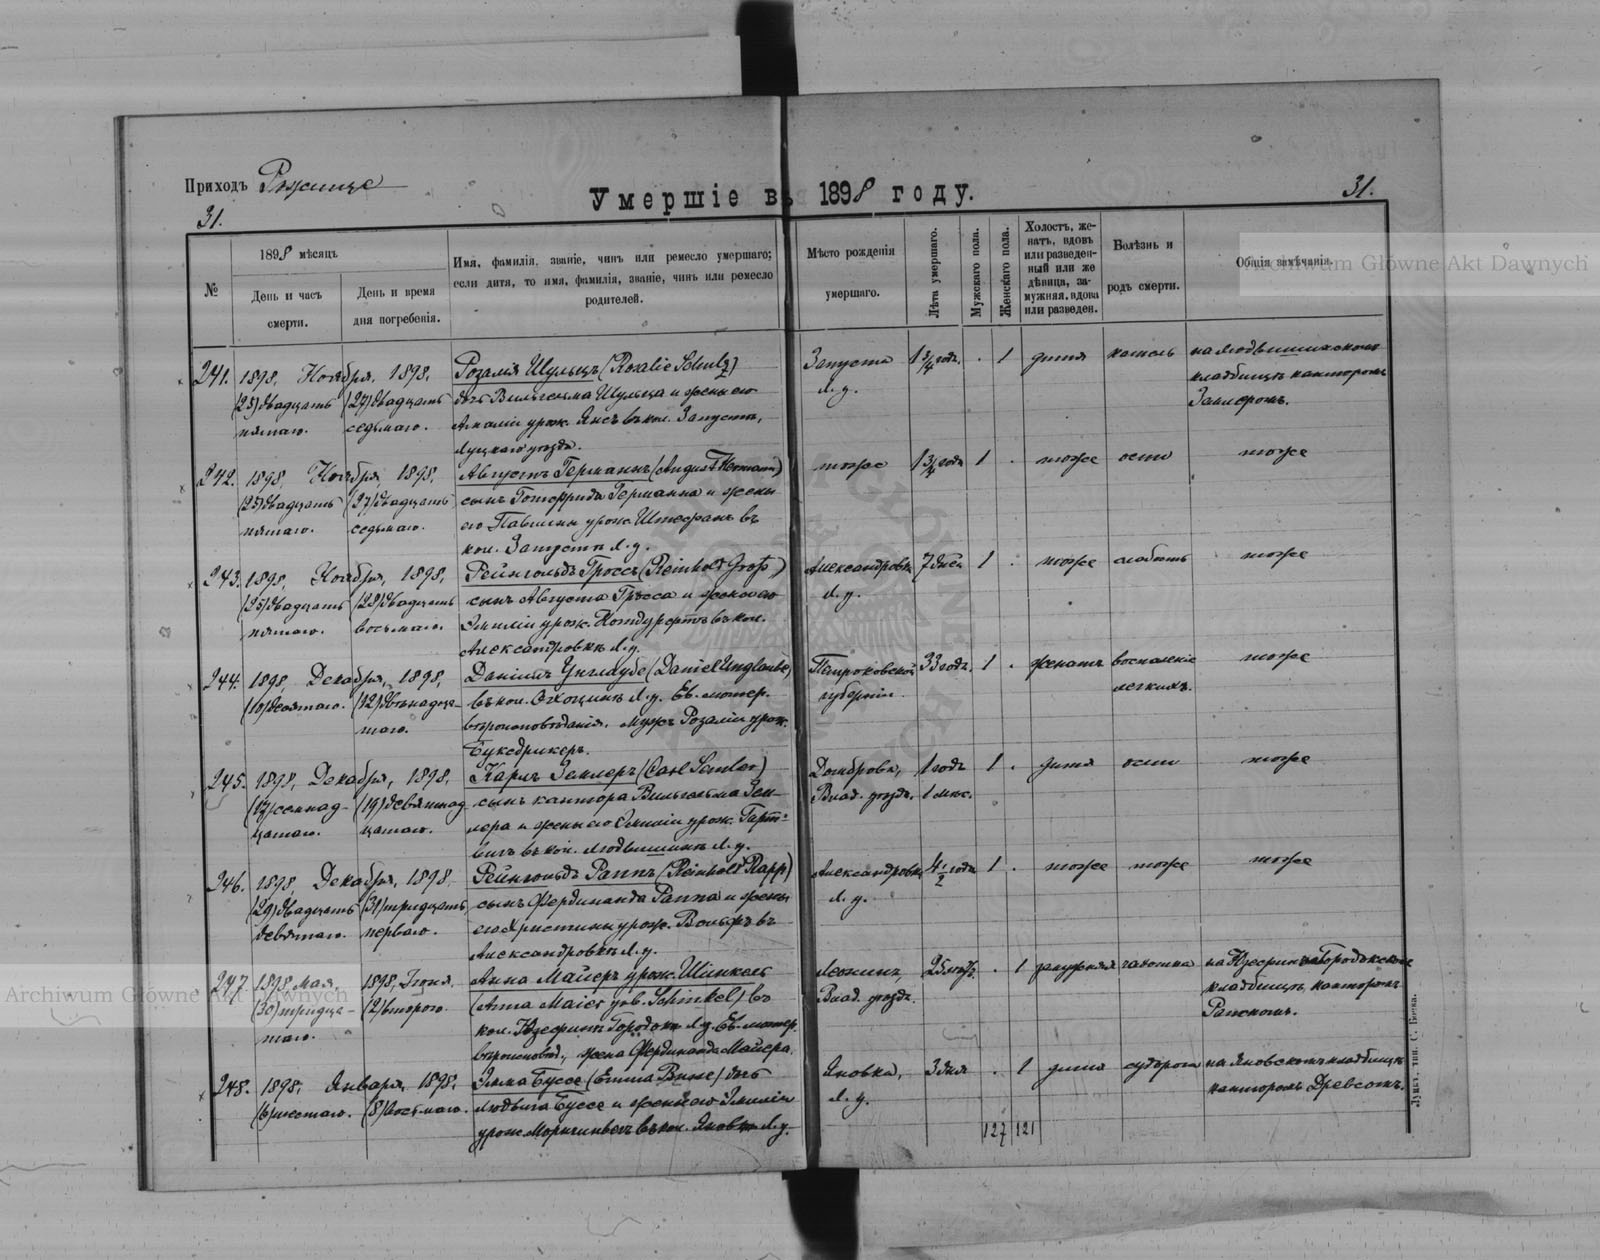 Приходъ Рожище
Умершіе въ 1898 году.
31.
31.
№
1898 мѣсяцъ
День и часъ
смерти.
День и время
дня погребенія.
Имя, фамилія, званіе, чинъ или ремесло умершаго;
если дитя, то имя, фамилія, званіе, чинъ или ремесло
родителей.
Мѣсто рожденія
умершаго.
Лѣта умершаго.
Мужскаго пола.
Женскаго пола.
Холостъ, же-
натъ, вдовъ
или разведен-
ный или же
дѣвица, за-
мужняя, вдова
или разведен.
Болѣзнь и
родъ смерти.
Общія замѣчанія.
Archiwum Główne Akt Dawnych
241. 1898, Ноября, 1898, Розалія Шульцъ (Rosalie Schulz) Запуста 1 3/4 года. . 1 дитя кашель на Людвишинскомъ
(25) двадцать (27) двадцать дочь Вильгельма Шульца и жены его Л. у. кладбищѣ канторомъ
пятаго. седьмаго. Амаліи урож. Янсъ въ кол. Запустѣ, Землеромъ.
Луцкаго уѣзда.
242. 1898, Ноября, 1898, Августъ Германнъ (August Hermann) тоже 1 3/4 года 1 . тоже оспа тоже
(25) двадцать (27) двадцать сынъ Готфрида Германна и жены
пятаго. седьмаго. его Павлины урож. Штефанъ въ
кол. Запустѣ Л. у.
243. 1898, Ноября, 1898, Рейнгольдъ Гроссъ (Reinhold Groß) Александровка 7 дней 1 . тоже слабость тоже
(25) двадцать (28) двадцать сынъ Августа Гросса и жены его Л. у.
пятаго. восьмаго. Эмиліи урож. въ кол.
Александровкѣ Л. у.
244. 1898, Декабря, 1898, Даніилъ Унглаубе (Daniel Unglaube) Петроковской 33 года. 1 . женатъ воспаленіе тоже
(10) десятаго. (12) двѣнадца- въ кол. Л. у. Ев. лютер. губерніи легкихъ.
таго. вѣроисповѣданія, мужъ Розаліи урож.
Буксдрикеръ.
245. 1898, Декабря, 1898, Карлъ Землеръ (Carl Semler) Домбровка, 1 годъ 1 . дитя оспа тоже
(17) семнад- (19) девятнад- сынъ кантора Вильгельма Зем- Влад. уѣзда. 1 мѣс.
цатаго. цатаго. лера и жены его Эмиліи урож. Гарт-
вигъ въ кол. Людвишинѣ Л. у.
246. 1898, Декабря, 1898, Рейнгольдъ Раппъ (Reinhold Rapp) Александровка 4 1/2 года 1 . тоже тоже тоже
(29) двадцать (31) тридцать сынъ Фердинанда Раппа и жены Л. у.
девятаго. перваго. его Христины урож. Вольфъ въ
Александровкѣ Л. у.
247. 1898 Мая, 1898, Іюня, Анна Майеръ урож. Шинкель 25 лѣтъ . 1 замужняя чахотка на Юзефинъ Городокскомъ
(30) тридца- (2) втораго. (Anna Maier geb. Schinkel) въ Влад. уѣзда. кладбищѣ канторомъ
таго. кол. Юзефинъ Городокъ Л. у. Ев. лютер.
вѣроисповѣд., жена Фердинанда Майера.
248. 1898, Января, 1898, Эмма Буссе (Emma Busse) дочь Яновка, 3 дня . 1 дитя судорога на Яновскомъ кладбищѣ
(6) шестаго. (8) восьмаго. Людвига Буссе и жены его Эмиліи Л. у. канторомъ Древсомъ.
урож. въ кол. Яновкѣ Л. у.
127 121
Archiwum Główne Akt Dawnych